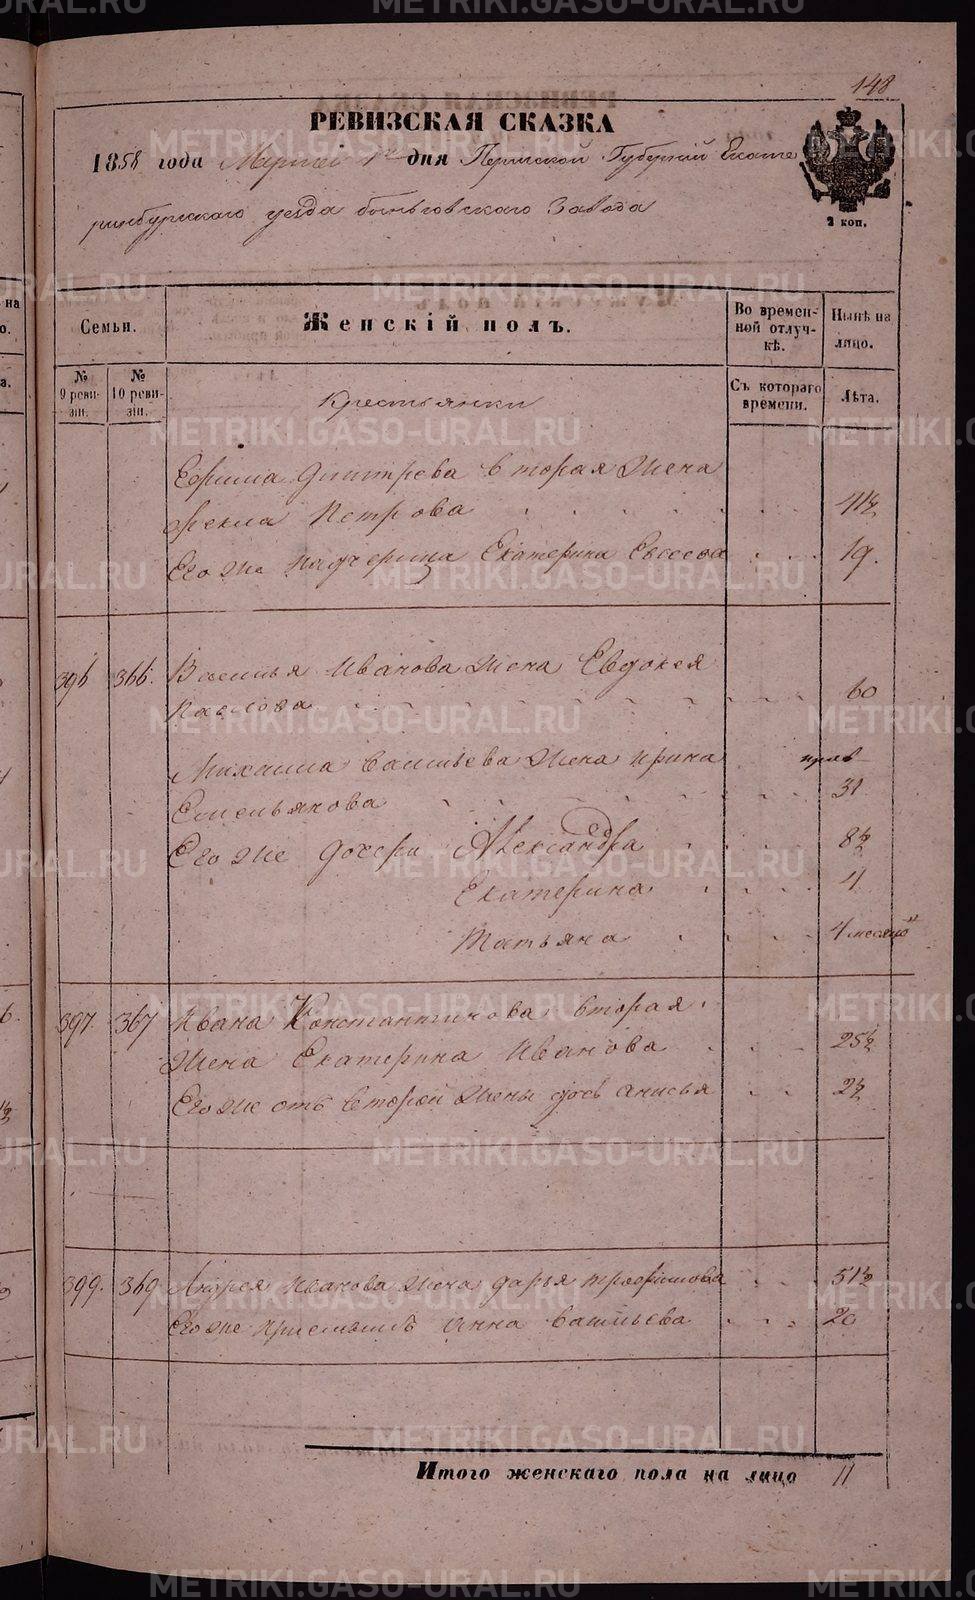 148
РЕВИЗСКАЯ СКАЗКА
1858 года Марта 1го дня Пермской Губернии Екате
ринбургскаго уезда быньговскаго Завода
2 коп.
Семьи.
Женскій полъ.
Во времен-
ной отлуч-
кѣ.
Нынѣ на
лицо.
№
9 реви-
зіи.
№
10 реви-
зіи.
Съ котораго
времени.
Лѣта.
Крестьянки
Ефима Дмитрева вторая жена
Фекла Петрова 41½
Его же падчерица Екатерина Евсеева 19.
396 366. Василья Иванова жена Евдокея
Павлова 60
Михаила Васильева жена Ирина
Емельянова 31
Его же дочери Александра 8½
Екатерина 4
Татьяна 4 месяцовъ
397. 367 Ивана Константинова вторая
жена Екатерина Иванова 25½
Его же отъ второй жены дочь Анисья 2½
399. 369 Андрея Иванова жена Дарья Трефилова 51½
Его же приемышъ Анна Васильева 20
Итого женскаго пола на лицо 11
METRIKI.GASO-URAL.RU